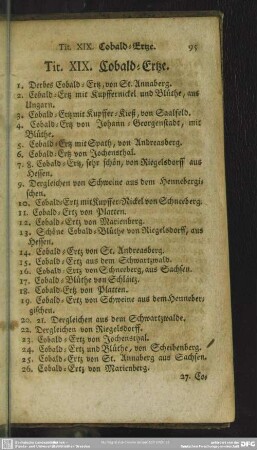 Tit. XIX. Cobald-Ertze. 95
Tit. XIX. Cobald-Ertze.
1. Derbes Cobald-Ertz, von St. Annaberg.
2. Cobald-Ertz mit Kupffernickel und Blüthe, aus
Ungarn.
3. Cobald-Ertz mit Kupffer-Kieß, von Saalfeld.
4. Cobald-Ertz von Johann-Georgenstadt, mit
Blüthe.
5. Cobald-Ertz mit Spath, von Andreasberg.
6. Cobald-Ertz von Jochensthal.
7. 8. Cobald-Ertz, sehr schön, von Riegelsdorff aus
Hessen.
9. Dergleichen von Schweine aus dem Hennebergi-
schen.
10. Cobald-Ertz mit Kupffer-Nickel von Schneeberg.
11. Cobald-Ertz von Platten.
12. Cobald-Ertz von Marienberg.
13. Schöne Cobald-Blüthe von Riegelsdorff, aus
Hessen.
14. Cobald-Ertz von St. Andreasberg.
15. Cobald-Ertz aus dem Schwartzwald.
16. Cobald-Ertz von Schneeberg, aus Sachsen.
17. Cobald-Blüthe von Schlaitz.
18. Cobald-Ertz von Platten.
19. Cobald-Ertz von Schweine aus dem Henneber-
gischen.
20. 21. Dergleichen aus dem Schwartzwalde.
22. Dergleichen von Riegelsdorff.
23. Cobald-Ertz von Jochensthal.
24. Cobald-Ertz und Blüthe, von Scheibenberg.
25. Cobald-Ertz von St. Annaberg aus Sachsen.
26. Cobald-Ertz von Marienberg.
27. Co-
DFG